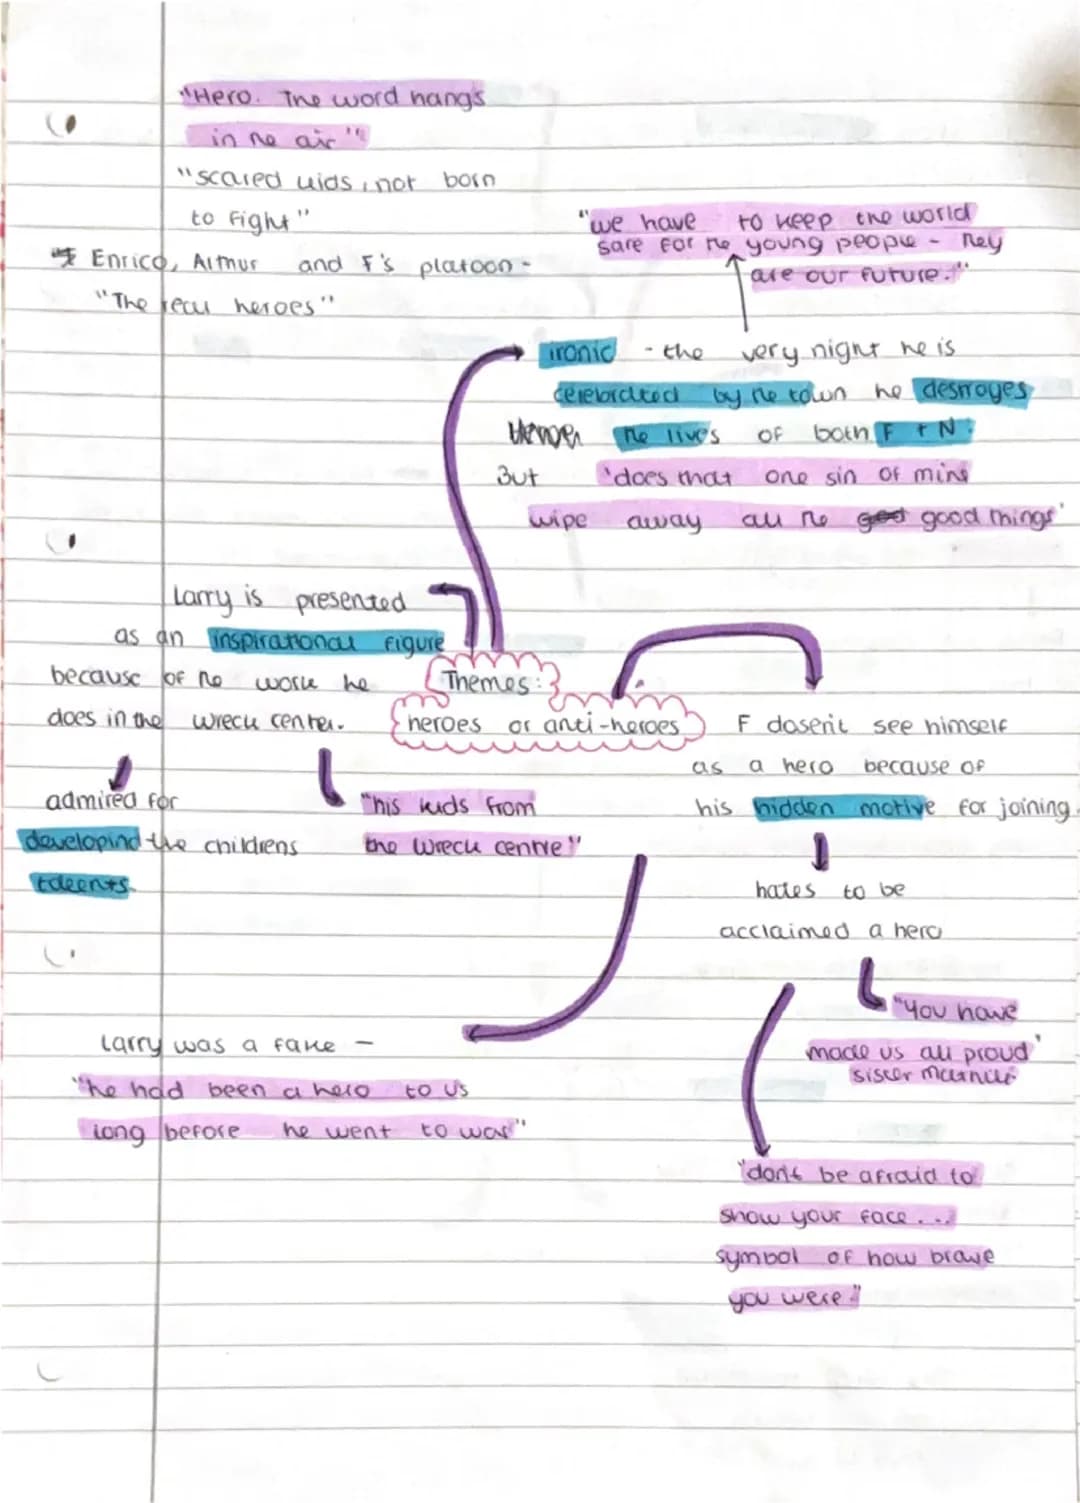 "Hero. The word hangs
in the air"
"scared kids, not born
to fight"
* Enrico, Arthur and F's platoon -
"The real heroes"
"we have to keep the world
safe for the young people - they
are our future."
ironic - the very night he is
celebrated by the town he destroyes
the lives of both F + N.
But 'does that one sin of mine
wipe away all the good things'
Larry is presented
as an inspirational figure
because of the work he
does in the wreck center.
admired for
developind the childrens
talents.
"his kids from
the wreck centre"
Themes:
heroes or anti-heroes
F dosen't see himself
as a hero because of
his hidden motive for joining.
hates to be
acclaimed a hero
"You have
made us all proud'
sister
Larry was a fake -
"he had been a hero to us
long before he went to war"
"don't be afraid to
show your face....
symbol of how brave
you were."